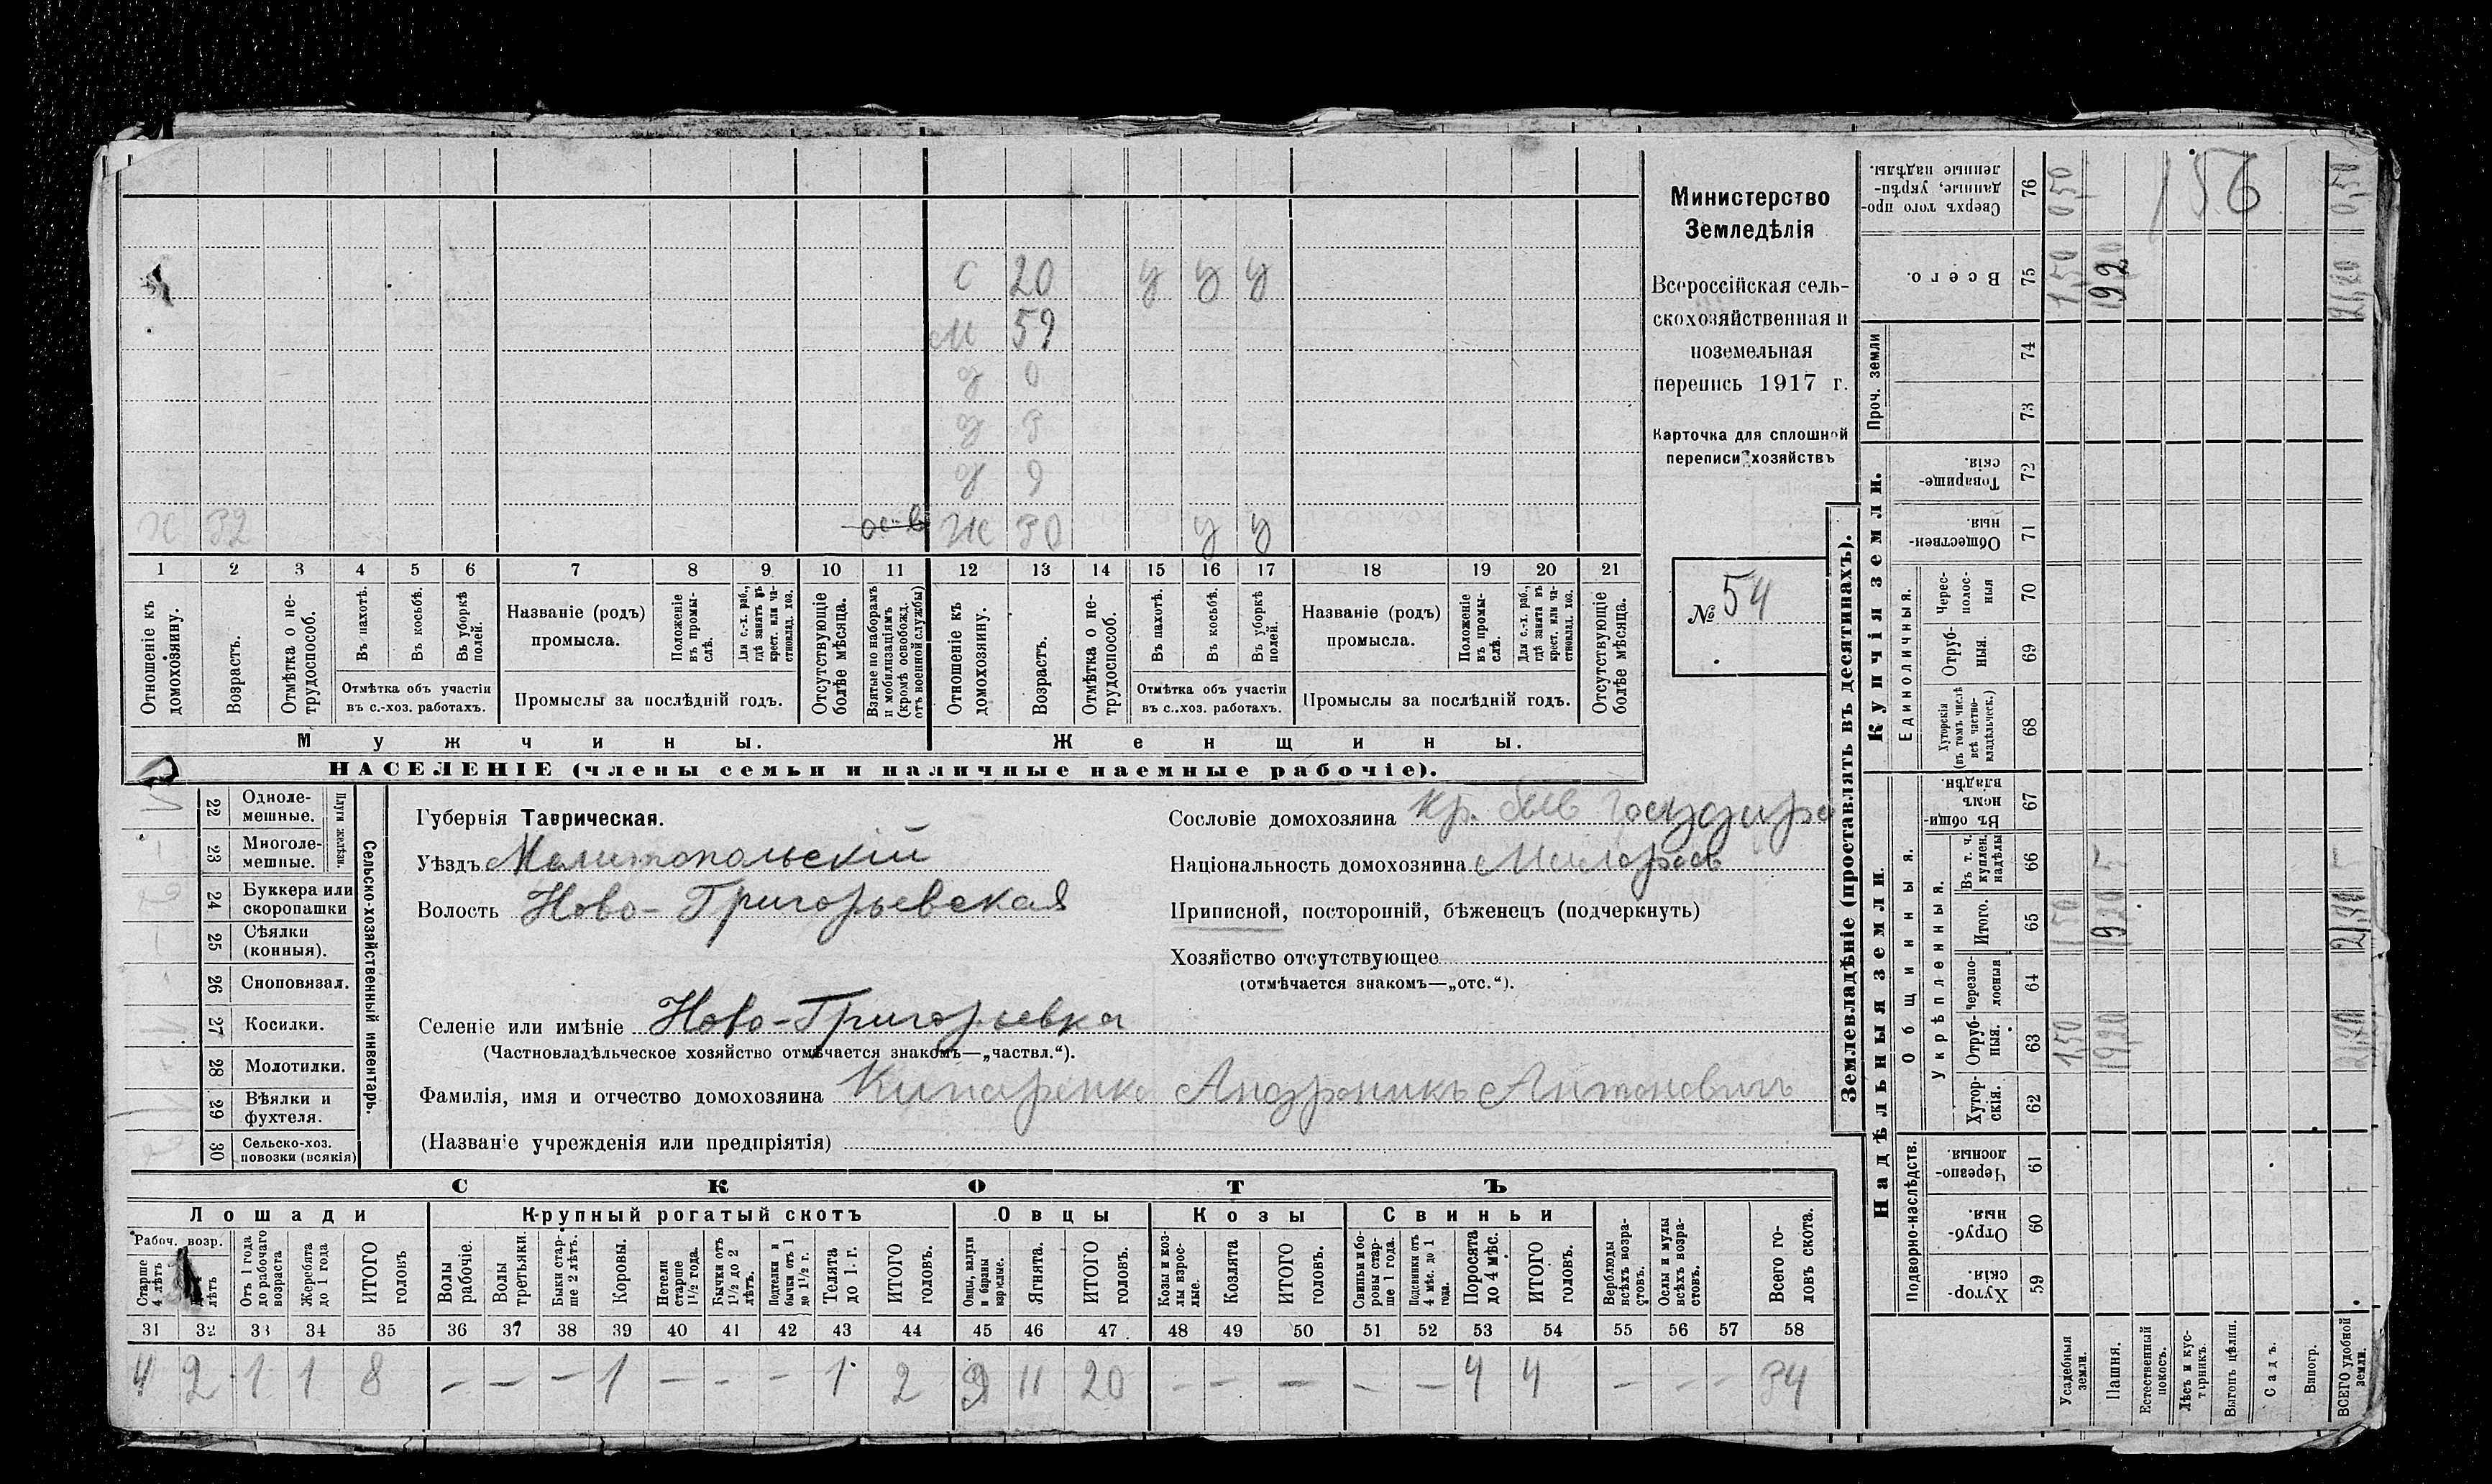 Министерство
Земледѣлія
Всероссійская сель-
скохозяйственная и
поземельная
перепись 1917 г.
Карточка для сплошной
переписи хозяйствъ
№ 54
156
с 20 у у у
м 59
д 0
д 3
д 9
х 32 Ж 30 у у
1 2 3 4 5 6 7 8 9 10 11 12 13 14 15 16 17 18 19 20 21
Отношеніе къ домохозяину.
Возрастъ.
Отмѣтка о не-трудоспособ.
Въ пахотѣ.
Въ косьбѣ.
Въ уборкѣ полей.
Отмѣтка объ участіи
въ с.-хоз. работахъ.
Названіе (родъ)
промысла.
Положеніе въ промы-слѣ.
Для с.-х. раб., гдѣ занятъ въ крест. или ча-стновлад. хоз.
Промыслы за послѣдній годъ.
Отсутствующіе болѣе мѣсяца.
Взятые по наборамъ и мобилизаціямъ (кромѣ освобожд. отъ военной службы)
Отношеніе къ домохозяину.
Возрастъ.
Отмѣтка о не-трудоспособ.
Въ пахотѣ.
Въ косьбѣ.
Въ уборкѣ полей.
Отмѣтка объ участіи
въ с.-хоз. работахъ.
Названіе (родъ)
промысла.
Положеніе въ промы-слѣ.
Для с.-х. раб., гдѣ занята въ крест. или ча-стновлад. хоз.
Промыслы за послѣдній годъ.
Отсутствующіе болѣе мѣсяца.
Мужчины. Женщины.
НАСЕЛЕНІЕ (члены семьи и наличные наемные рабочіе).
Сельско-хозяйственный инвентарь.
Плуги желѣзн.
22 Одноле-мешные.
23 Многоле-мешные.
24 Буккера или скоропашки
25 Сѣялки (конныя).
26 Сноповязал.
27 Косилки.
28 Молотилки.
29 Вѣялки и фухтеля.
30 Сельско-хоз. повозки (всякія)
Губернія Таврическая.
Уѣздъ Мелитопольскій
Волость Ново-Григорьевская
Селеніе или имѣніе Ново-Григорьевка
(Частновладѣльческое хозяйство отмѣчается знакомъ—„частвл.“).
Фамилія, имя и отчество домохозяина Кипаренко Андроникъ Антоновичъ
(Названіе учрежденія или предпріятія)
Сословіе домохозяина Кр. быв государ
Національность домохозяина Малоросъ
Приписной, посторонній, бѣженецъ (подчеркнуть)
Хозяйство отсутствующее
(отмѣчается знакомъ—„отс.“).
СКОТЪ
Лошади Крупный рогатый скотъ Овцы Козы Свиньи
Рабоч. возр.
Старше 4 лѣтъ
лѣтъ
Отъ 1 года до рабочаго возраста
Жеребята до 1 года
ИТОГО головъ
Волы рабочіе.
Волы третьячки.
Быки стар-ше 2 лѣтъ.
Коровы.
Нетели старше 1½ года.
Бычки отъ 1½ до 2 лѣтъ.
Подтелки и бычки отъ 1 до 1½ г.
Телята до 1 г.
ИТОГО головъ.
Овцы, валухи и бараны взрослые.
Ягнята.
ИТОГО головъ.
Козы и коз-лы взрос-лые.
Козлята
ИТОГО головъ.
Свиньи и бо-ровы стар-ше 1 года.
Подсвинки отъ 4 мѣс. до 1 года.
Поросята до 4 мѣс.
ИТОГО головъ.
Верблюды всѣхъ возра-стовъ.
Ослы и мулы всѣхъ возра-стовъ.
Всего го-ловъ скота.
31 32 33 34 35 36 37 38 39 40 41 42 43 44 45 46 47 48 49 50 51 52 53 54 55 56 57 58
4 2 1 1 8 — — — 1 — — — 1 2 9 11 20 — — — — — 4 4 — — — 34
Землевладѣніе (проставлять въ десятинахъ).
Надѣльныя земли. Купчія земли. Проч. земли
Подворно-наслѣдств.
Общинныя.
Укрѣпленныя.
Единоличныя.
59 Хутор-скія.
60 Отруб-ныя.
61 Черезпо-лосныя
62 Хутор-скія.
63 Отруб-ныя.
64 Черезпо-лосныя
65 Итого.
66 Въ т. ч. куплен. надѣлы
67 Въ общин-номъ владѣн.
68 Хуторскія (въ томъ числѣ всѣ частно-владѣльческ.)
69 Отруб-ныя.
70 Черес-полос-ныя
71 Обществен-ныя.
72 Товарище-скія.
73
74
75 Всего.
76 Сверхъ того про-данные, укрѣп-ленные надѣлы.
Усадебныя земли. 1,50 1,50 1,50 0,50
Пашня. 19,20 19,20 19,20
Естественный покосъ.
Лѣсъ и кус-тарникъ.
Выгонъ цѣлин.
Садъ.
Виногр.
ВСЕГО удобной земли. 21,40 21,20 0,50